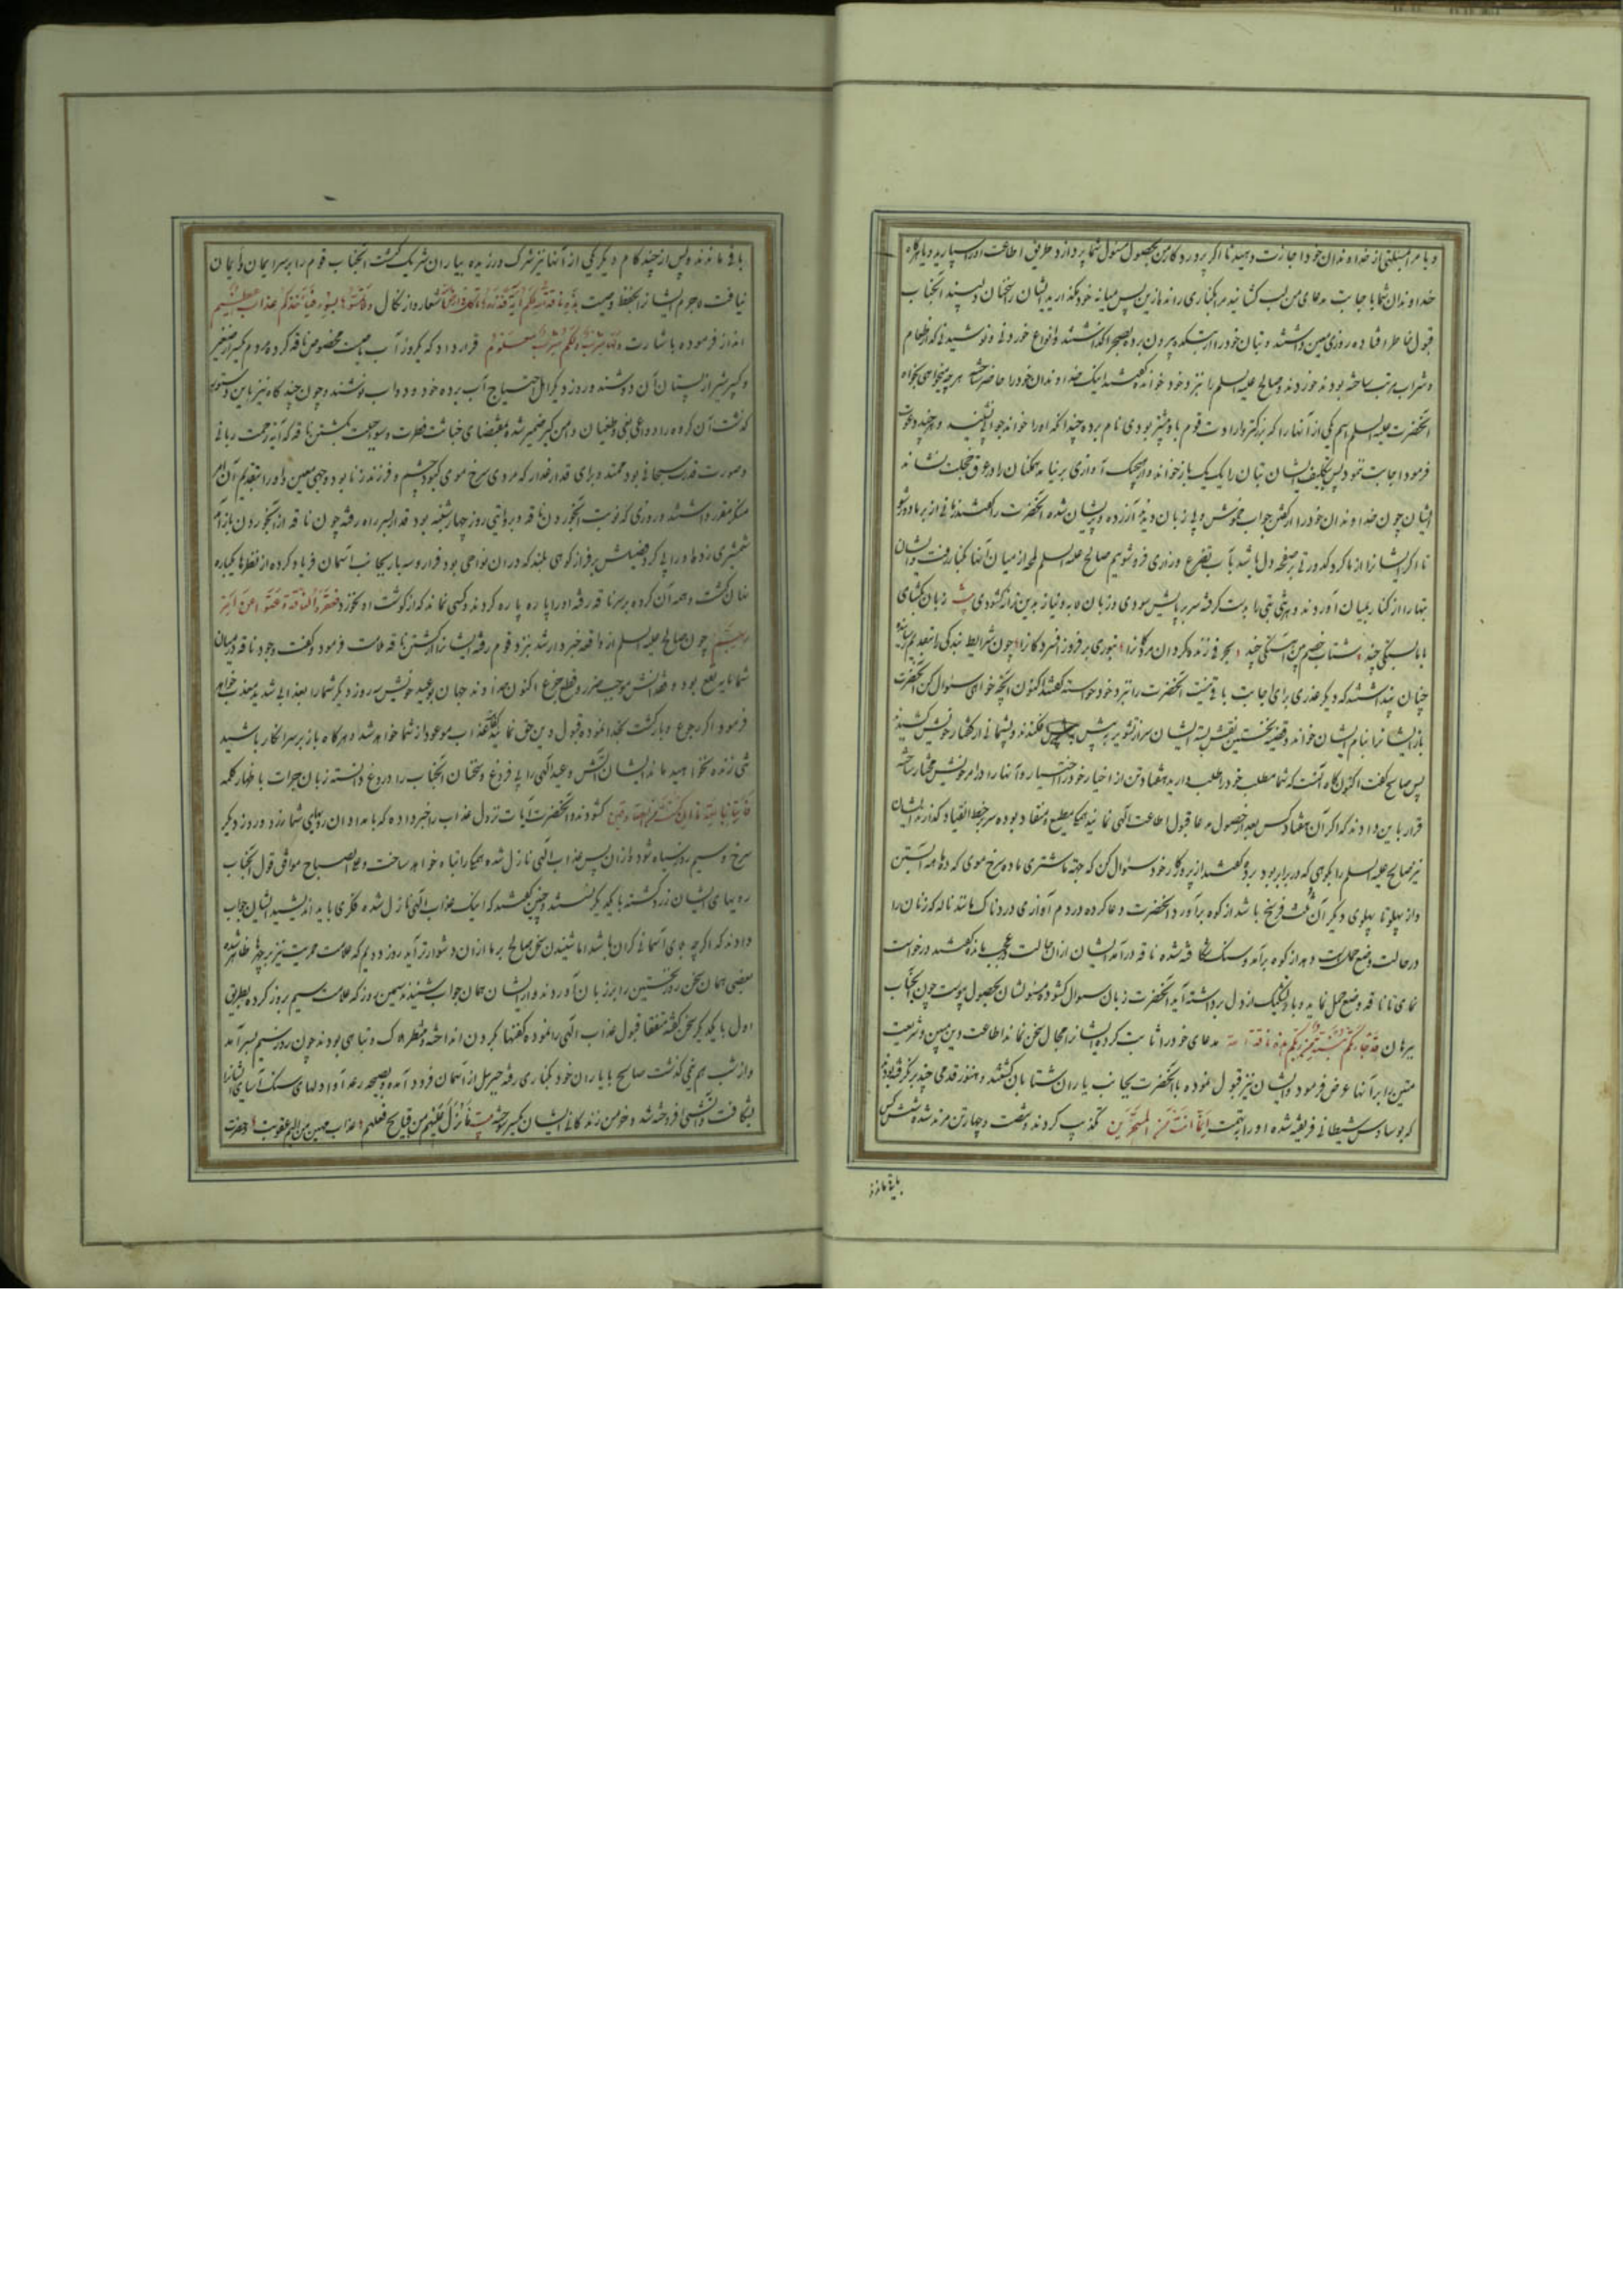 و یا مرا مسئلتی از خداوندان خود اجازت دهید تا اگر پروردگار من بحصول مسئول شما پردازد طریق اطاعت او سپارید و یا هرگاه
خداوندان شما باجابت مدعای من لب گشایند مرا بکناری رانده ازین پس میانه خود نگذارید ایشان را سخنان دلپسند آنجناب
قبول خاطر افتاده روزی معین داشتند و بتان خود را از بتکده بیرون برده بصحرا گذاشتند و انواع خوردنی و نوشیدنی که از طعام
و شراب مرتب ساخته بودند خوردند و صالح علیه السلم را نزد خود خوانده گفتند اینک خداوندان خود را حاضر ساخته هر چه میخواهی بخواه
آنحضرت علیه السلم اسم یکی از آنها را که بزرگتر و ارادت قوم باو بیشتر بودی نام برده چندانکه او را خواند جوابی نشنید و هر چند دعوت
فرمود اجابت ننمود پس بتکلیف ایشان بتان را یک یک باز خوانده و از هیچیک آوازی بر نیامد همکنان را در عرق خجلت نشانه
ایشان چون خداوندان خود را از گفتن جواب خموش و بی زبان دیدند آزرده و پریشان شده آنحضرت را گفتند زمانی از بر ما دور شو
تا اگر ایشانرا از ما گرد کدورتی بر صفحه دل باشد بآب تضرع و زاری فرو شوئیم صالح علیه السلم لمحه از میان آنها کنار رفت و ایشان
بتها را از کنار بمیان آوردند و هر شخصی بتی را بدست گرفته سر بر پایش سودی و زبان لابه و نیاز بدین ترانه گشودی بیت زبان گشای
چنان پنداشتند که دیگر عذری برای اجابت باقی نیست آنحضرت را نزد خود خواسته گفتند اکنون آنچه خواهی سئوال کن آنحضرت
باز ایشانرا بنام ایشان خواند و قضیه نخستین نقش بسته ایشان سر از تشویر پیش فکندند و پشیمانی از گفتار خویش کشیدند
پس صالح گفت اکنون گاه آنست که شما مطلب خود را طلب دارید هفتاد تن از اخیار خود را اختیار و آنها را در امر خویش مختار ساخته
قرار باین دادند که اگر آن هفتاد کس بعد از حصول مدعا قبول اطاعت الهی نمایند همگی مطیع و منقاد بوده سر بر خط انقیاد گذارند ایشان
نیز صالح علیه السلم را بکوهی که در برابر بود برده گفتند از پروردگار خود سئوال کن که جهة ما شتری ماده سرخ موی که ده ماهه آبستن
و از پهلو تا پهلوی دیگر آن ثلث فرسخ باشد از کوه برآورد آنحضرت دعا کرده در دم آوازی دردناک مانند ناله که زنان را
در حالت وضع حمل است دهد از کوه برآمد و سنگ شکافته شده ناقه درآمد ایشان از آن حالت در عجب مانده گفتند درخواست
نمای تا ناقه وضع حمل نماید و ما را شک از دل برداشته آید آنحضرت زبان سوال گشود و مسئولشان بحصول پیوست چون آنجناب
برهان قد جاءتکم بینة من ربکم هذه ناقة الله مدعای خود را ثابت کرده ایشانرا مجال سخن نماند اطاعت دین مبین و شریعت
متین را بر آنها عرض فرمود و ایشان نیز قبول نموده با آنحضرت بجانب یاران شتابان گشتند و هنوز قدمی چند برنگرفته بودند
که بوساوس شیطانی فریفته شده او را بتهمت إنما أنت من المسحرین تکذیب کردند و شصت و چهار تن مرتد شده شش کس
باقی ماندند
باقی ماندند و پس از چند گام دیگر یکی از آنها نیز شرک ورزیده بیاران شریک گشت آنجناب قوم را بر سر ایمان و ایمان
نیافت لاجرم ایشانرا بحفظ وصیت هذه ناقة الله لکم آیة فذروها تأکل فی أرض الله شعار و از نکال ولا تمسوها بسوء فیأخذکم عذاب عظیم
انذار فرموده باشارت لها شرب ولکم شرب یوم معلوم قرار داد که یکروز آب بالتمام مخصوص ناقه کرده مردم کبیر و صغیر
گذشت آن گروه را دواعی بغی و طغیان دامن گیر ضمیر شده بمقتضای خباثت فطرت و سوء طبیعت بکشتن ناقه که آیه رحمت ربانی
و صورت قدرت سبحانی بود همتند و برای قدار غدار که مردی سرخ موی کبود چشم و فرزند زنا بود وجهی معین و او را بتقدیم آن امر
منکر مقرر داشتند و روزی که نوبت آبخوردن ناقه و بروایتی روز چهارشنبه بود قدار بسر راه رفته چون ناقه از آبخوردن باز آمد
شمشیری زده او را پی کرد و فصیلش بر فراز کوهی بلند که در آن نواحی بود فرار و سه بار بجانب آسمان فریاد کرده از نظرها یکباره
نهان گشت و همه آن گروه بر سر ناقه رفته او را پاره پاره کردند و کسی نماند که از گوشت او نخورد فعقروا الناقة وعتوا عن أمر
ربهم چون صالح علیه السلم از واقعه خبردار شد نزد قوم رفته ایشانرا از کشتن ناقه ملامت فرمود و گفت وجود ناقه در میان
شما مایه نفع بود و فقدانش موجب ضرر و قطع ضرع اکنون خداوند جهان بوعید خویش سه روز دیگر شما را بعذابی شدید معذب خواهد
فرمود اگر رجوع و بازگشت بخدا نموده قبول دین حق نمائید عذاب موعود از شما خواهد شد و هرگاه باز بر سر انکار باشید
شی زنده نخواهید ماند ایشان آتش وعید الهی را بی فروغ و سخنان آنجناب را دروغ دانسته زبان جرات باظهار کلمه
فأتنا بآیة إن کنت من الصادقین گشودند و آنحضرت آیات نزول عذاب را خبر داده که بامدادان رویهای شما زرد و روز دیگر
سرخ و سیم روز سیاه شود و از آن پس عذاب الهی نازل شده همگی را تباه خواهد ساخت و علی الصباح موافق قول آنجناب
رویهای ایشان زرد گشته با یکدیگر نشسته و چنین گفتند که اینک عذاب الهی نازل شد و فکری باید اندیشید ایشان جواب
دادند که اگر چه بلای آسمانی گران باشد اما شنیدن سخن صالح بر ما از آن دشوارتر آید روز دویم که علامت حمریت نیز بر چهرها ظاهر شده
بعضی همان سخن روز نخستین را بر زبان آوردند و از ایشان همان جواب شنیدند سیمین روز که علامت سیم بروز کرده بطریق
اول با یکدیگر سخن گفته متفقا قبول عذاب الهی را نموده کفنها بگردن انداخته و منتظر هلاک و تباهی بودند چون روز سیم بسر آمد
و از شب نیمی گذشت صالح با یاران خود بکناری رفته جبرئیل از آسمان فرود آمده و بصیحه رعد آوا دلهای سنگ آسای ایشانرا
بشکافت و آتشی افروخته شد و خرمن زندگانی ایشان یکسر بسوخت بیت